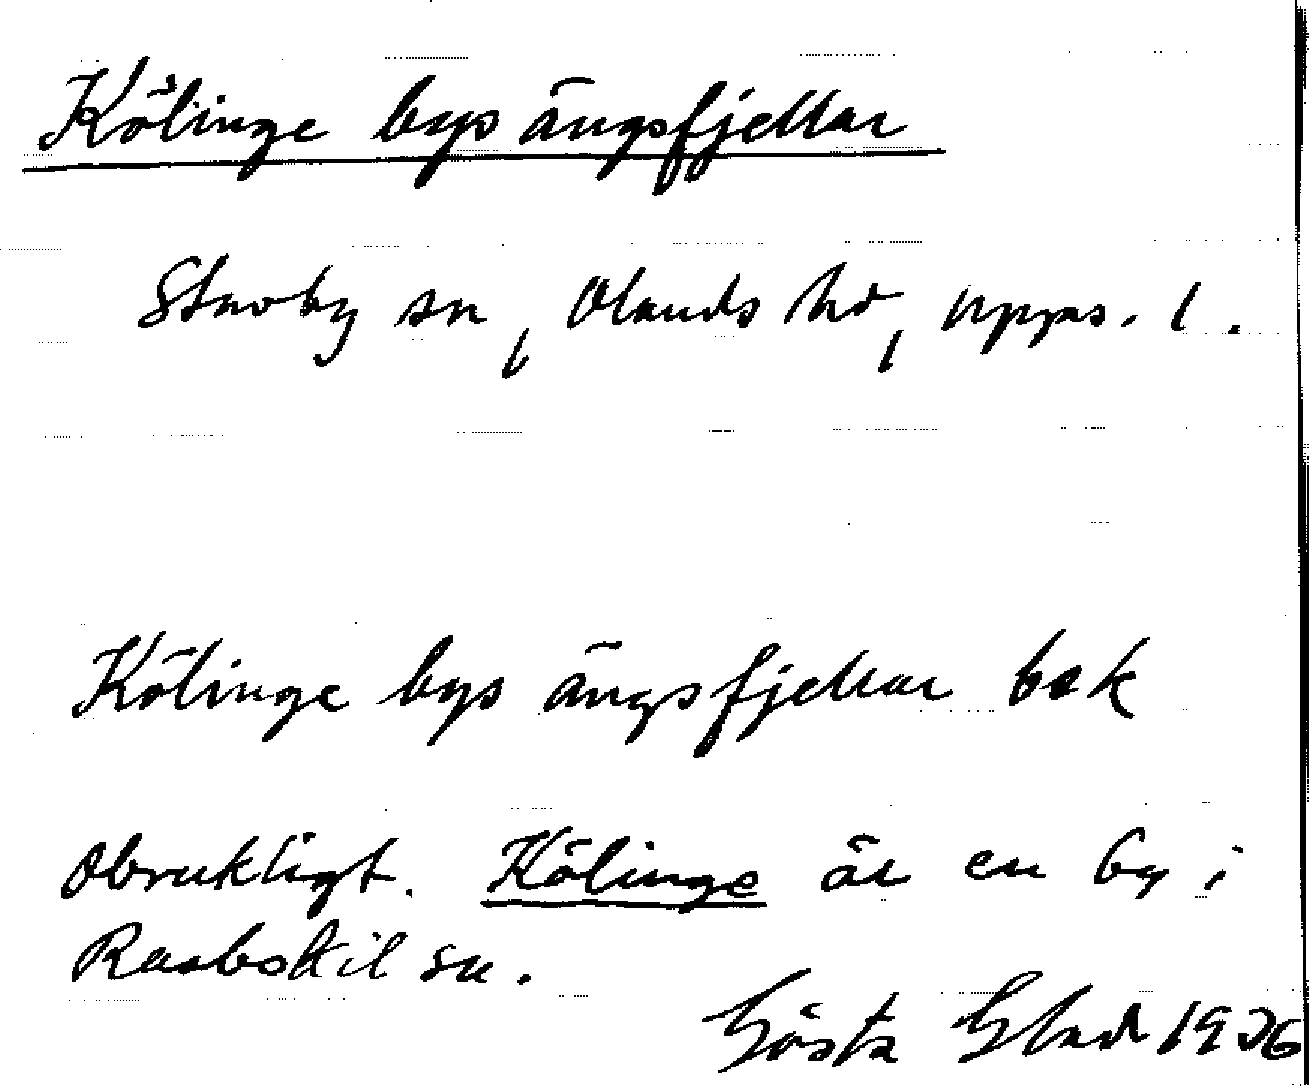 Kölinge bys ängsfjellar
Stavby sn, Olands hd, Upps. l.
Kölinge bys ängsfjellar bek
Obrukligt. Kölinge är en by i
Rasbokil sn.
Gösta 1936